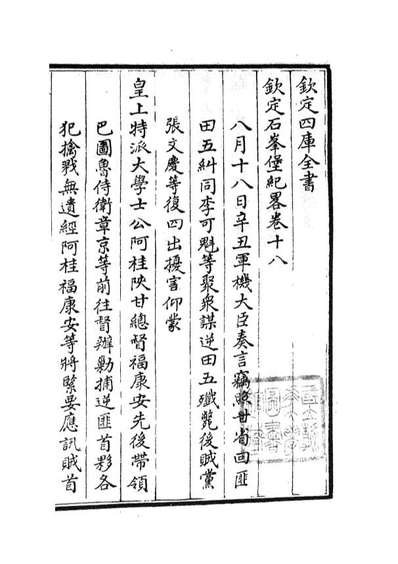 欽定四庫全書
欽定石峯堡紀畧卷十八
八月十八日辛丑軍機大臣奏言竊照甘省回匪
田五糾同李可魁等聚衆謀逆田五殲斃後賊黨
張文慶等復四出擾害仰蒙
皇上特派大學士公阿桂陜甘總督福康安先後帶領
巴圖魯侍衛章京等前往督辦勦捕逆匪首夥各
犯擒戮無遺經阿桂福康安等將緊要應訊賊首